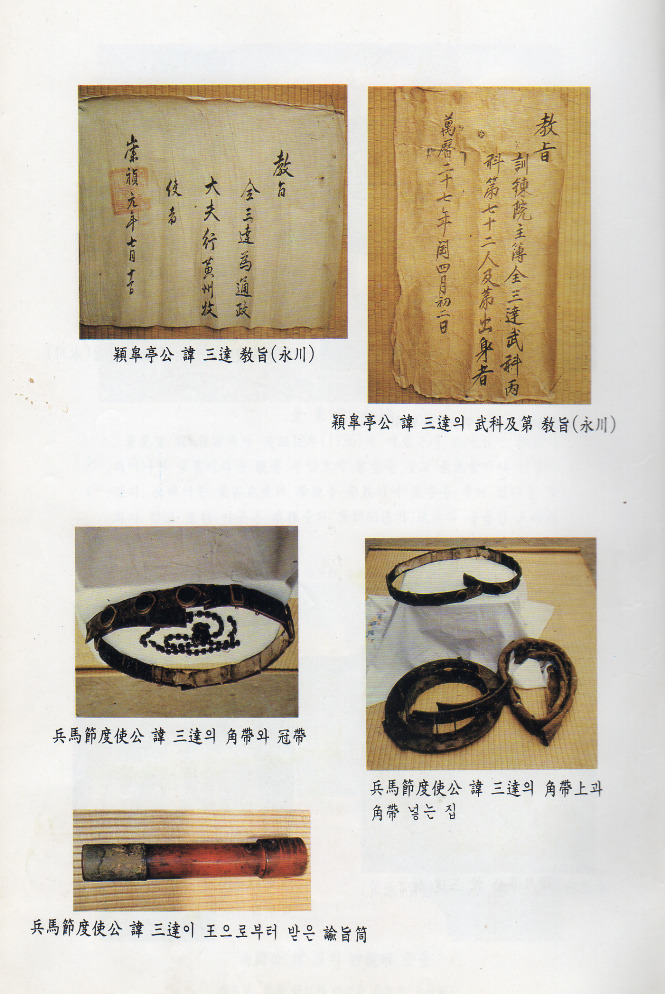 教旨
全三達為通政
大夫行黃州牧
使者
崇禎元年七月十一日
穎皐亭公 諱 三達 敎旨(永川)
教旨
訓鍊院主簿全三達武科丙
科第七十二人及第出身者
萬曆二十七年閏四月初二日
穎皐亭公 諱 三達의 武科及第 敎旨(永川)
兵馬節度使公 諱 三達의 角帶와 冠帶
兵馬節度使公 諱 三達의 角帶上과
角帶 넣는 집
兵馬節度使公 諱 三達이 王으로부터 받은 諭旨筒